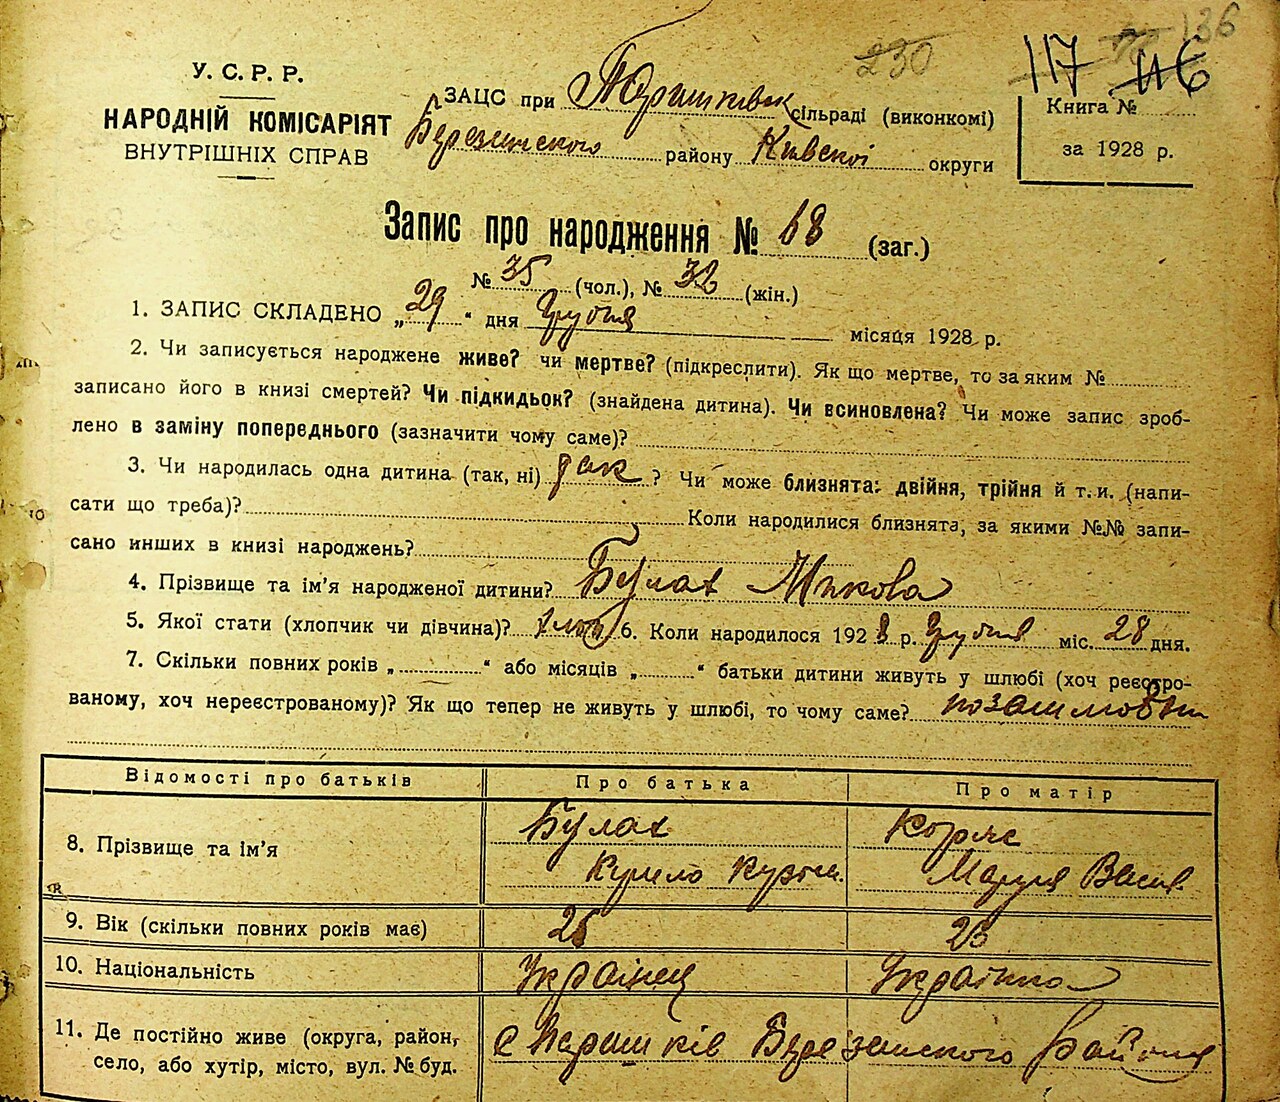 230
136
117 116
У. С. Р. Р.
НАРОДНІЙ КОМІСАРІЯТ
ВНУТРІШНІХ СПРАВ
ЗАЦС при сільраді (виконкомі)
району Київської округи
Книга №
за 1928 р.
Запис про народження № 68 (заг.)
№ 35 (чол.), № 32 (жін.)
1. ЗАПИС СКЛАДЕНО „29“ дня Грудня місяця 1928 р.
2. Чи записується народжене живе? чи мертве? (підкреслити). Як що мертве, то за яким №
записано його в книзі смертей? Чи підкидьок? (знайдена дитина). Чи всиновлена? Чи може запис зроб-
лено в заміну попереднього (зазначити чому саме)?
3. Чи народилась одна дитина (так, ні) так ? Чи може близнята: двійня, трійня й т. и. (напи-
сати що треба)? Коли народилися близнята, за якими №№ запи-
сано инших в книзі народжень?
4. Прізвище та ім’я народженої дитини? Булах Микола
5. Якої стати (хлопчик чи дівчина)? хлоп 6. Коли народилося 1928 р. Грудня міс. 28 дня.
7. Скільки повних років „ “ або місяців „ “ батьки дитини живуть у шлюбі (хоч реєстро-
ваному, хоч нереєстрованому)? Як що тепер не живуть у шлюбі, то чому саме?
Відомості про батьків Про батька Про матір
8. Прізвище та ім’я Булах
Корж
Кирило
Маруся Васил
9. Вік (скільки повних років має) 23
10. Національність Українец Українка
11. Де постійно живе (округа, район,
село, або хутір, місто, вул. № буд.
с Березанського району